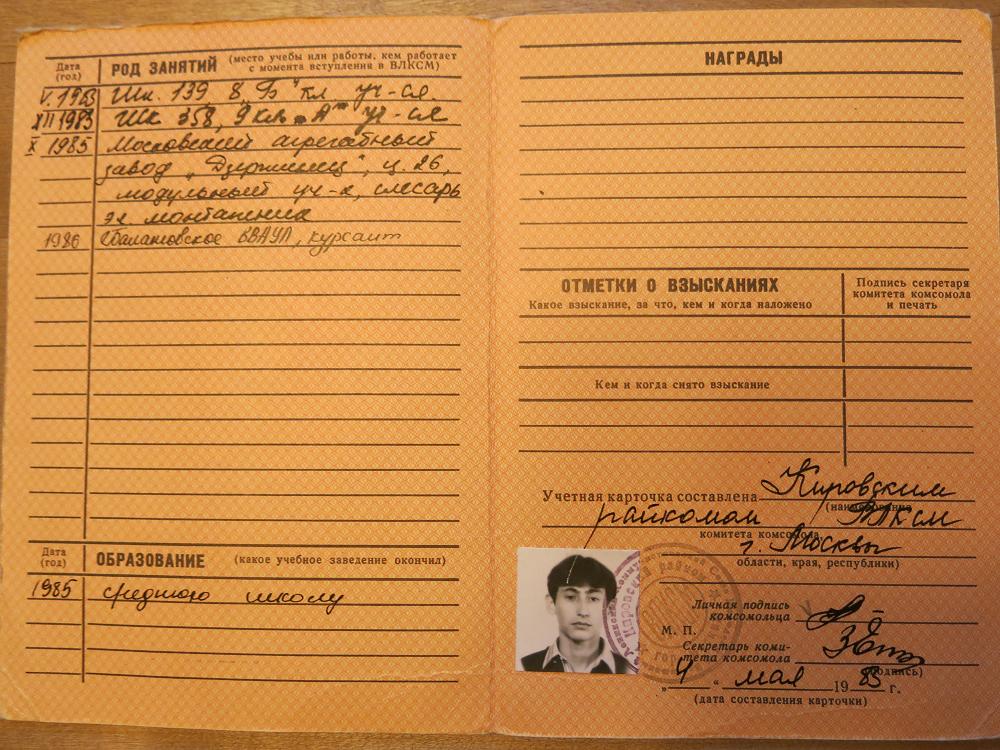 Дата (год)
РОД ЗАНЯТИЙ (место учебы или работы, кем работает с момента вступления в ВЛКСМ)
V. 1983 Шк. 139, 8 „Б" кл. уч-ся.
XII 1983 Шк 358, 9 кл. „А" уч-ся
X 1985 Московский агрегатный
завод „Дзержинец", ц. 26,
модульный уч-к, слесарь
эл. монтажник
1986 Балашовское ВВАУЛ, курсант
Дата (год)
ОБРАЗОВАНИЕ (какое учебное заведение окончил)
1985 среднюю школу
НАГРАДЫ
ОТМЕТКИ О ВЗЫСКАНИЯХ
Какое взыскание, за что, кем и когда наложено
Подпись секретаря
комитета комсомола
и печать
Кем и когда снято взыскание
Учетная карточка составлена Кировским
(наименование
райкомом ВЛКСМ
комитета комсомола,
г. Москвы
области, края, республики)
Личная подпись
комсомольца
М. П.
Секретарь коми-
тета комсомола
(подпись)
„4" мая 1983 г.
(дата составления карточки)